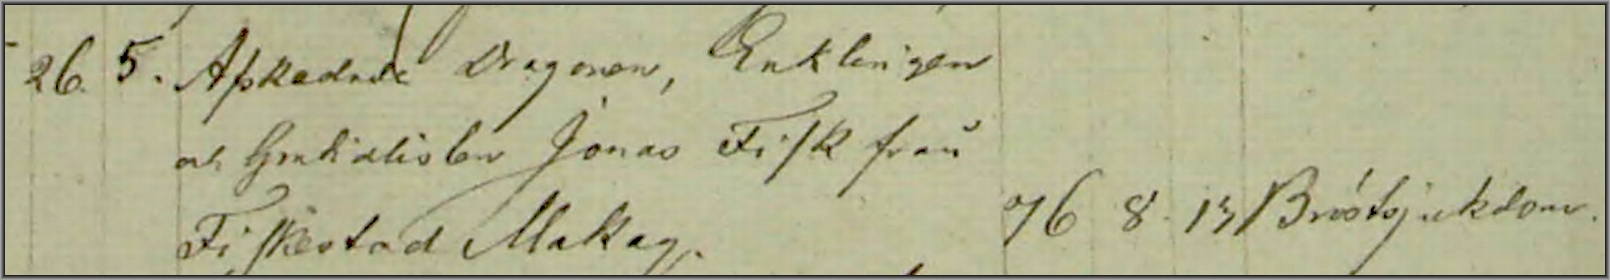 26. 5. Afskedade Dragonen, Enklingen
och Gratialisten Jonas Fisk från
Fiskestad Makag. 76 8 13 Bröstsjukdom.